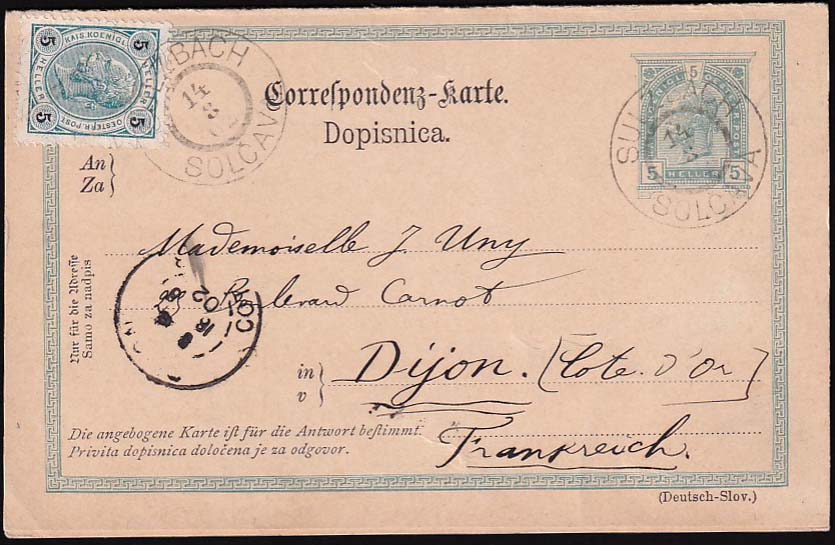 5 KAIS. KOENIGL. 5
HELLER HELLER
5 OESTER. POST 5
BACH
14
8
SOLČAVA
Correſpondenz-Karte.
Dopisnica.
5
5 HELLER 5
SUL BACH
14
8
SOLČAVA
An
Za
Nur für die Adreſſe
Samo za nadpis
Mademoiselle J. Uny
Boulevard Carnot
COT
16
8
02
in
v
Dijon. [Cote. d'Or]
Frankreich.
Die angebogene Karte iſt für die Antwort beſtimmt.
Privita dopisnica določena je za odgovor.
(Deutsch-Slov.)